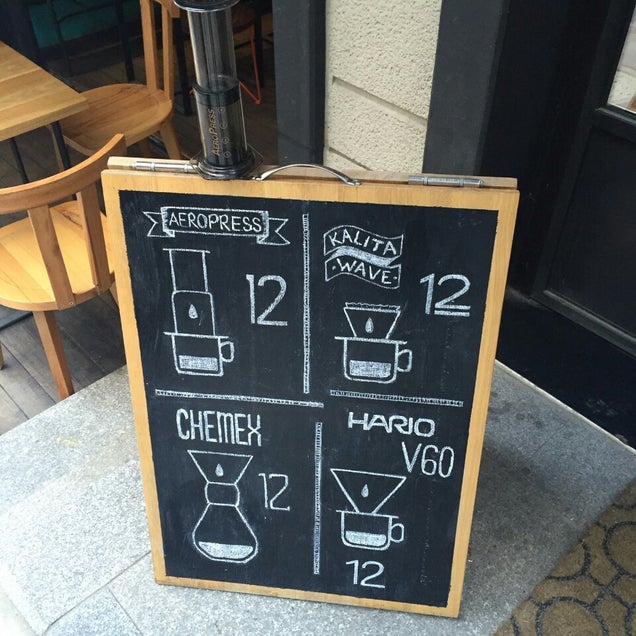 AEROPRESS
AEROPRESS
12
KALITA
WAVE
12
CHEMEX
12
HARIO
V60
12